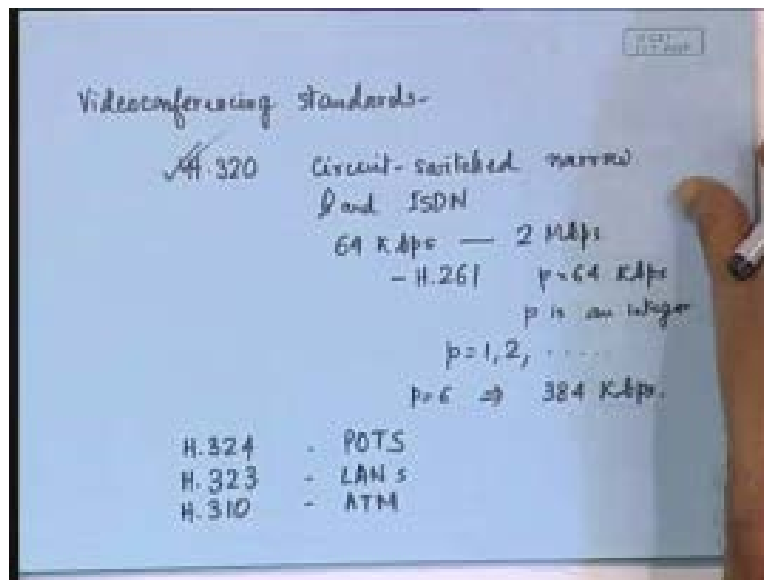 Videoconferencing standards-
H.320 Circuit-switched narrow
band ISDN
64 Kbps — 2 Mbps
- H.261 p×64 Kbps
p is an integer
p=1,2, .....
p=6 ⇒ 384 Kbps.
H.324 - POTS
H.323 - LANs
H.310 - ATM